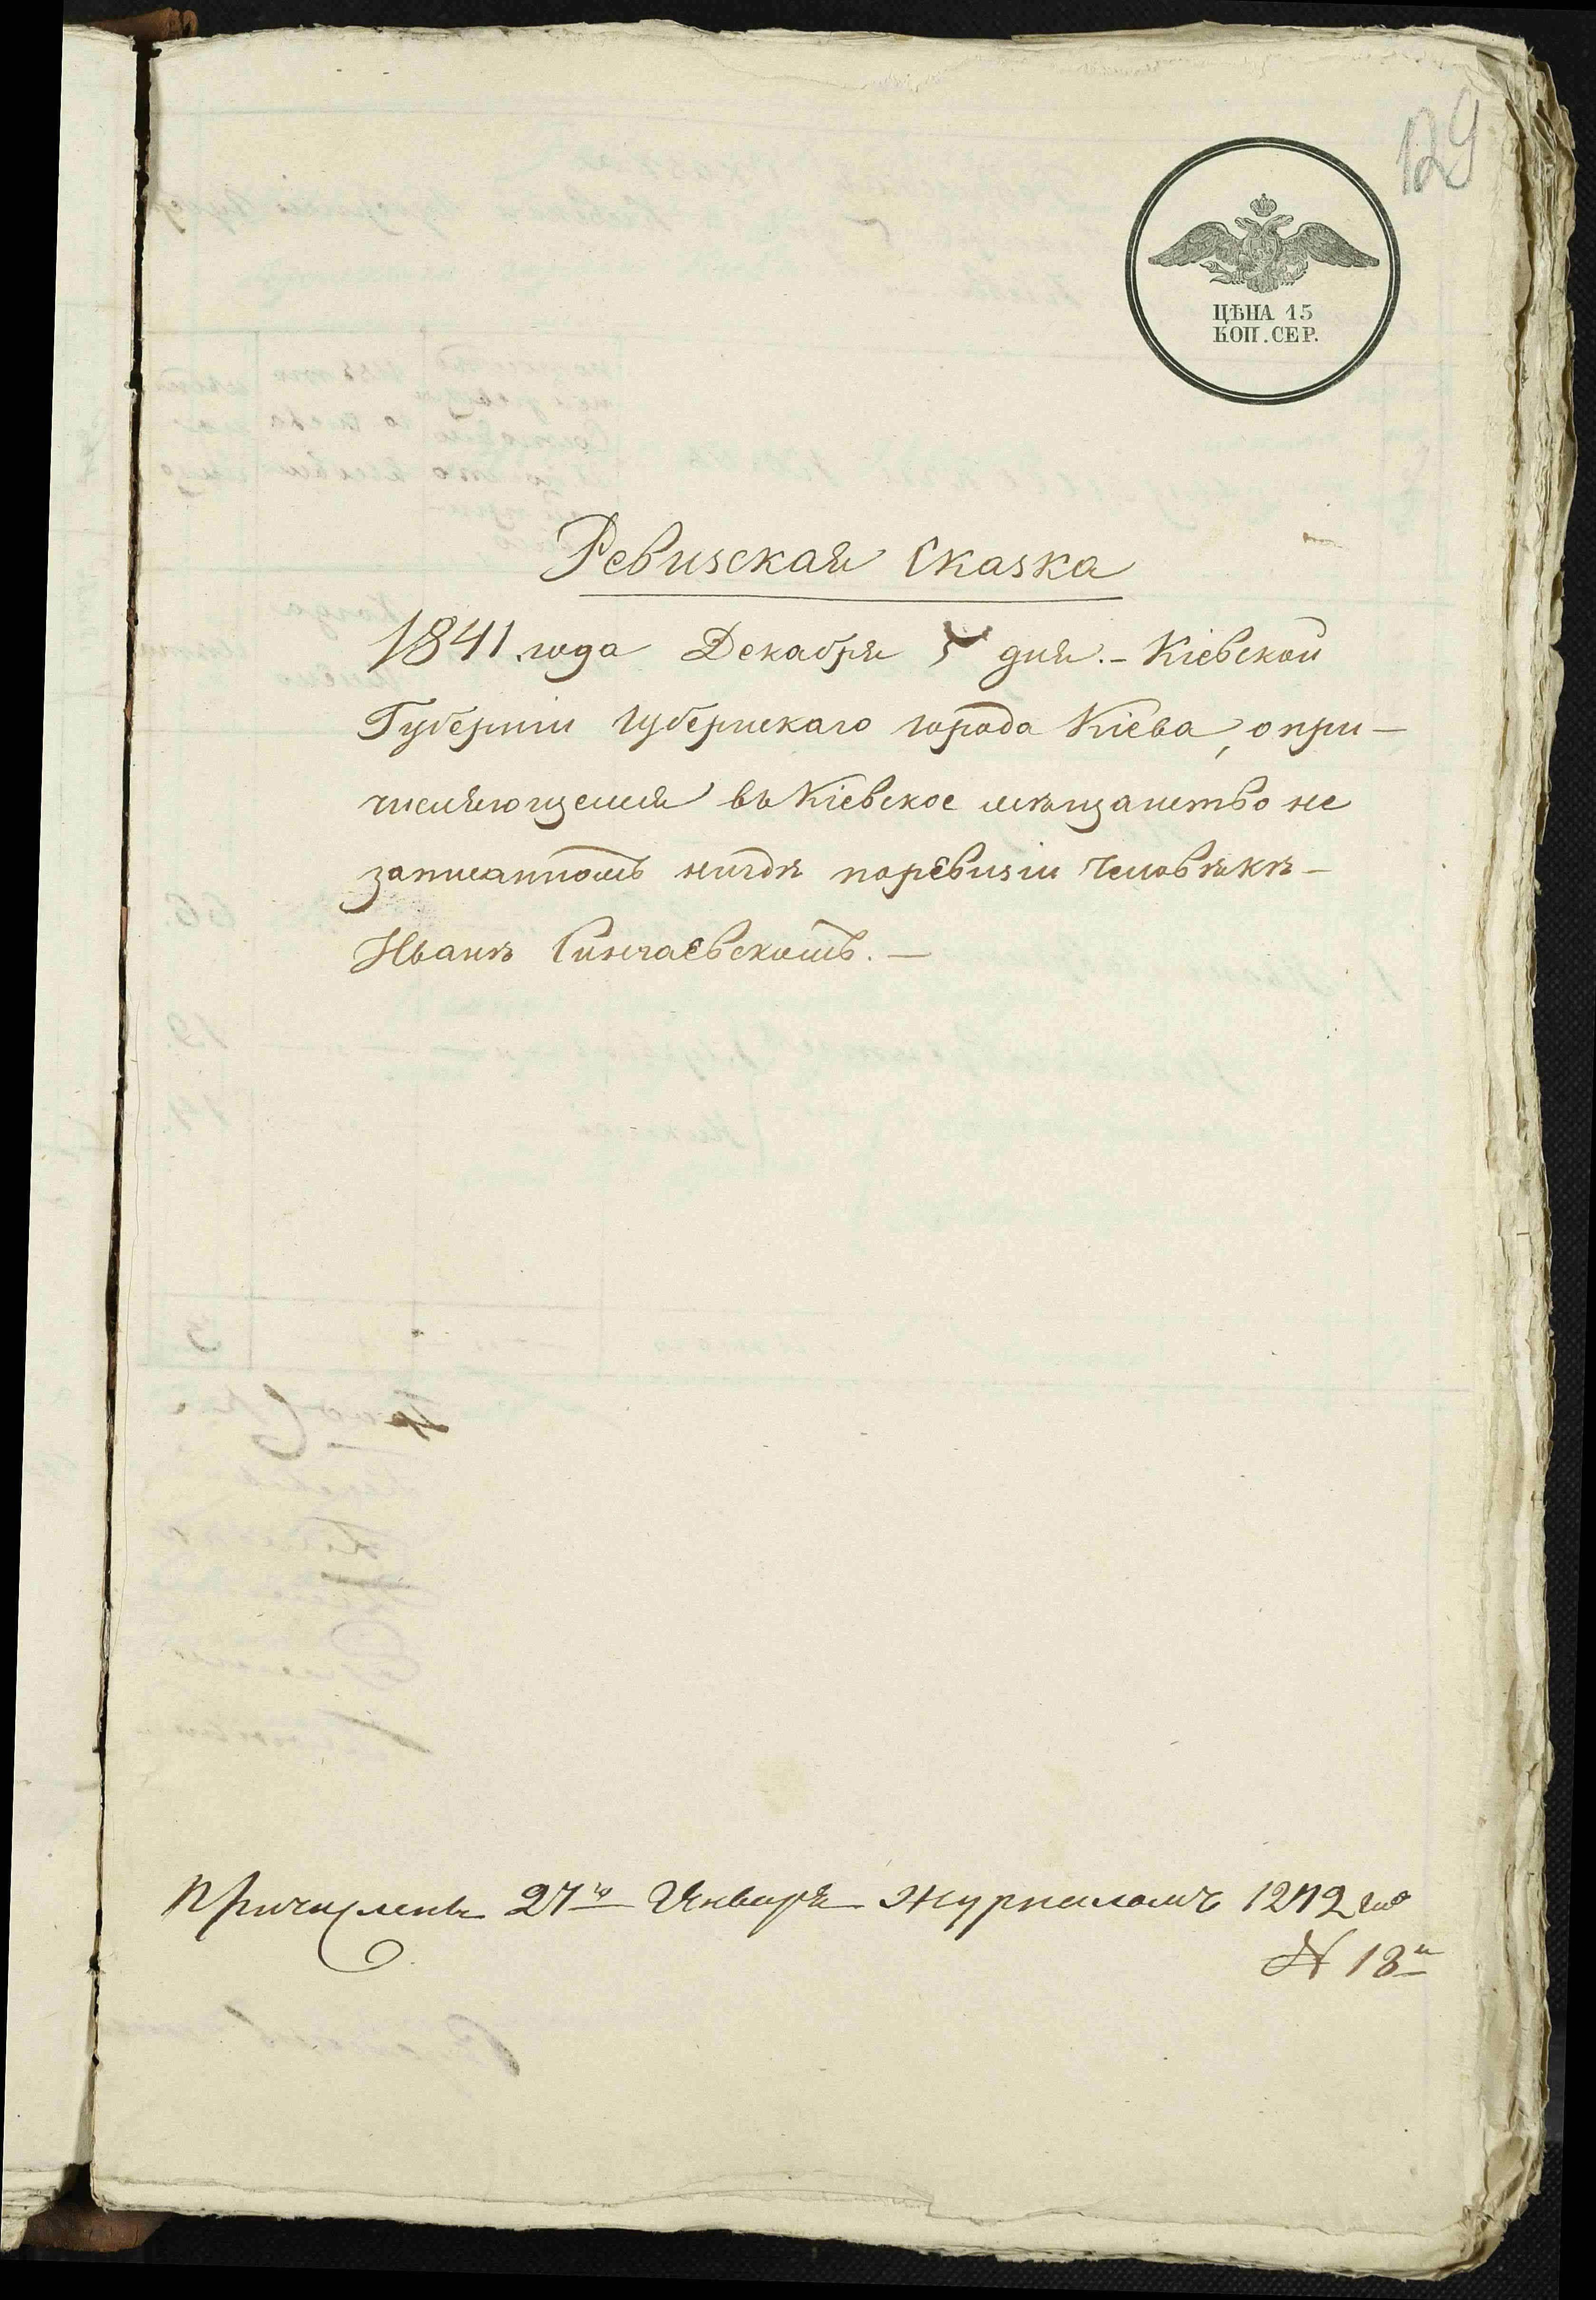 129
ЦѢНА 15
КОП. СЕР.
Ревизская Сказка
1841 года Декабря 5 дня. - Кіевской
Губерніи Губернскаго города Кіева, о при-
числяющемся въ Кіевское мѣщанство не
записанномъ нигдѣ поревизіи человѣкѣ -
Иванѣ Синчаевскомъ. -
Причисленъ 27го Января журналомъ 1842 го
N 18